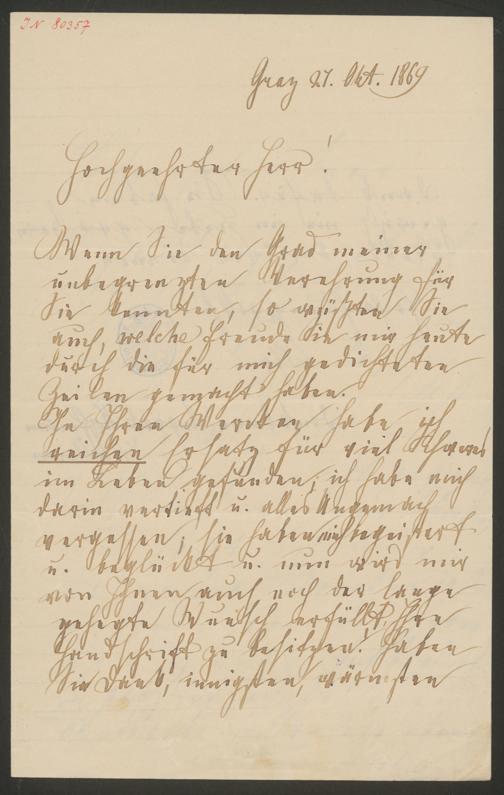 IN 80357
Graz 27. Okt. 1869
Hochgeehrter Herr!
Wenn Sie den Grad meiner
unbegrenzten Verehrung für
Sie kennten, so wüßten Sie
auch, welche Freude Sie mir heute
durch die für mich gedichteten
Zeilen gemacht haben.
In Ihren Werken habe ich
reichen Ersatz für viel Schweres
im Leben gefunden; ich habe mich
darin vertieft u. alles Ungemach
vergessen; sie haben mich begeistert
u. beglückt u. nun wird mir
von Ihnen auch noch der lange
gehegte Wunsch erfüllt, Ihre
Handschrift zu besitzen! Haben
Sie Dank, innigsten, wärmsten